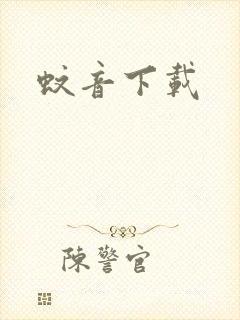 蚊音下載
陳警官